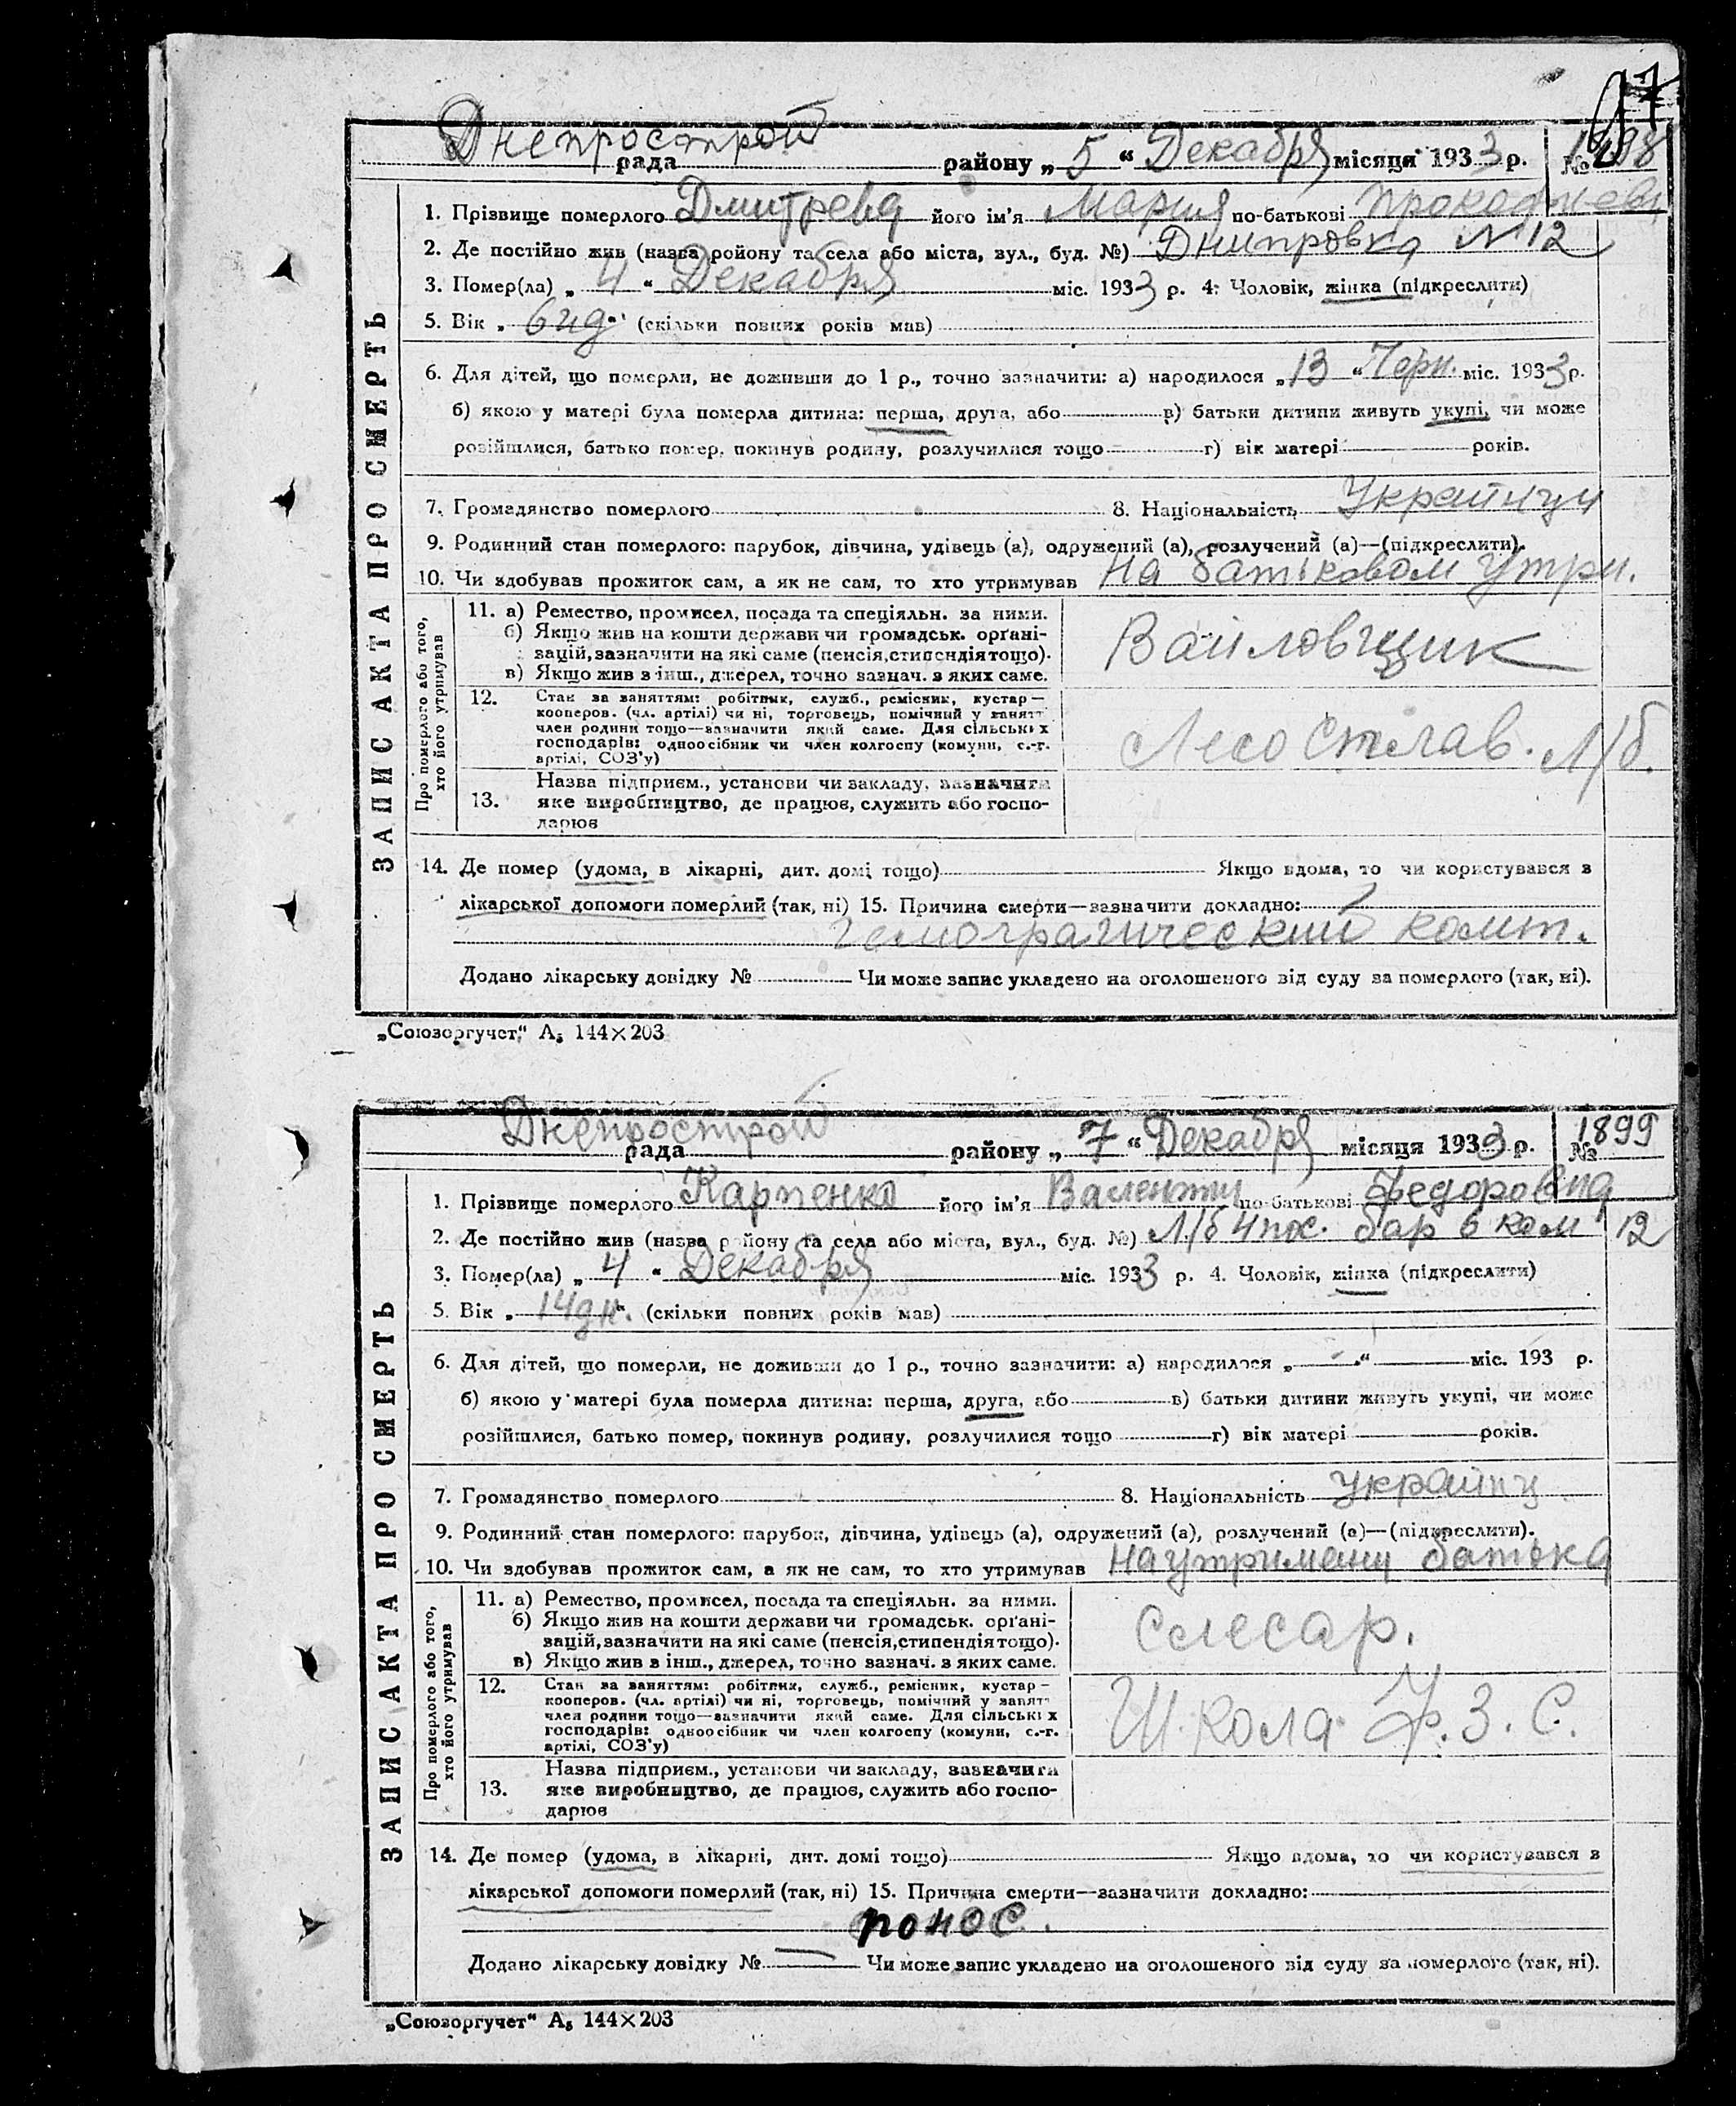 Днепрострой
рада района „ 5 “ Декабря місяця 1933 р. № 1898
1. Прізвище померлого Дмитрева його ім'я Мария по-батькові
2. Де постійно жив (назва району та села або міста, вул., буд. №) Днипровка N 12
3. Помер(ла) „ 4 “ Декабря міс. 1933 р. 4. Чоловік, жінка (підкреслити)
5. Вік „ “ (скільки повних років мав)
6. Для дітей, що померли, не доживши до 1 р., точно зазначити: а) народилося „ 13 “ Черн. міс. 1933 р.
б) якою у матері була померла дитина: перша, друга, або в) батьки дитини живуть укупі, чи може
розійшлися, батько помер, покинув родину, розлучилися тощо г) вік матері років.
7. Громадянство померлого 8. Національність
9. Родинний стан померлого: парубок, дівчина, удівець (а), одружений (а), розлучений (а)—(підкреслити).
10. Чи здобував прожиток сам, а як не сам, то хто утримував На батьковом утрим.
ЗАПИС АКТА ПРО СМЕРТЬ
Про померлого або того,
хто його утримував
11. а) Ремество, промисел, посада та спеціяльн. за ними.
б) Якщо жив на кошти держави чи громадськ. орґані-
зацій, зазначити на які саме (пенсія, стипендія тощо).
в) Якщо жив з інш., джерел, точно зазнач. з яких саме.
12. Стан за заняттям: робітник, служб., ремісник, кустар—
кооперов. (чл. артілі) чи ні, торговець, помічний у занятт
член родини тощо—зазначити який саме. Для сільських
господарів: одноосібник чи член колгоспу (комуни, с.-г.
артілі, СОЗ'у)
Лесо Сплав. Л/б.
13. Назва підприєм., установи чи закладу, зазначити
яке виробництво, де працює, служить або госпо-
дарює
14. Де помер (удома, в лікарні, дит. домі тощо) Якщо вдома, то чи користувався з
лікарської допомоги померлий (так, ні) 15. Причина смерти—зазначити докладно:
Додано лікарську довідку № Чи може запис укладено на оголошеного від суду за померлого (так, ні).
„Союзоргучет“ А₅ 144×203
Днепрострой
рада району „ 7 “ Декабря місяця 1933 р. № 1899
1. Прізвище померлого Карпенко його ім'я по-батькові Федоровна
2. Де постійно жив (назва району та села або міста, вул., буд. №) Л/б 4 пос. бар 6 ком 12
3. Помер(ла) „ 4 “ Декабря міс. 1933 р. 4. Чоловік, жінка (підкреслити)
5. Вік „ 14 дн. “ (скільки повних років мав)
6. Для дітей, що померли, не доживши до 1 р., точно зазначити: а) народилося „ “ міс. 193 р.
б) якою у матері була померла дитина: перша, друга, або в) батьки дитини живуть укупі, чи може
розійшлися, батько помер, покинув родину, розлучилися тощо г) вік матері років.
7. Громадянство померлого 8. Національність
9. Родинний стан померлого: парубок, дівчина, удівець (а), одружений (а), розлучений (а)—(підкреслити).
10. Чи здобував прожиток сам, а як не сам, то хто утримував На утримани батька
ЗАПИС АКТА ПРО СМЕРТЬ
Про померлого або того,
хто його утримував
11. а) Ремество, промисел, посада та спеціяльн. за ними.
б) Якщо жив на кошти держави чи громадськ. орґані-
зацій, зазначити на які саме (пенсія, стипендія тощо).
в) Якщо жив з інш., джерел, точно зазнач. з яких саме.
Слесар.
12. Стан за заняттям: робітник, служб., ремісник, кустар—
кооперов. (чл. артілі) чи ні, торговець, помічний у занятт
член родини тощо—зазначити який саме. Для сільських
господарів: одноосібник чи член колгоспу (комуни, с.-г.
артілі, СОЗ'у)
Школа Ф. З. С.
13. Назва підприєм., установи чи закладу, зазначити
яке виробництво, де працює, служить або госпо-
дарює
14. Де помер (удома, в лікарні, дит. домі тощо) Якщо вдома, то чи користувався з
лікарської допомоги померлий (так, ні) 15. Причина смерти—зазначити докладно:
понос.
Додано лікарську довідку № Чи може запис укладено на оголошеного від суду за померлого (так, ні).
„Союзоргучет“ А₅ 144×203